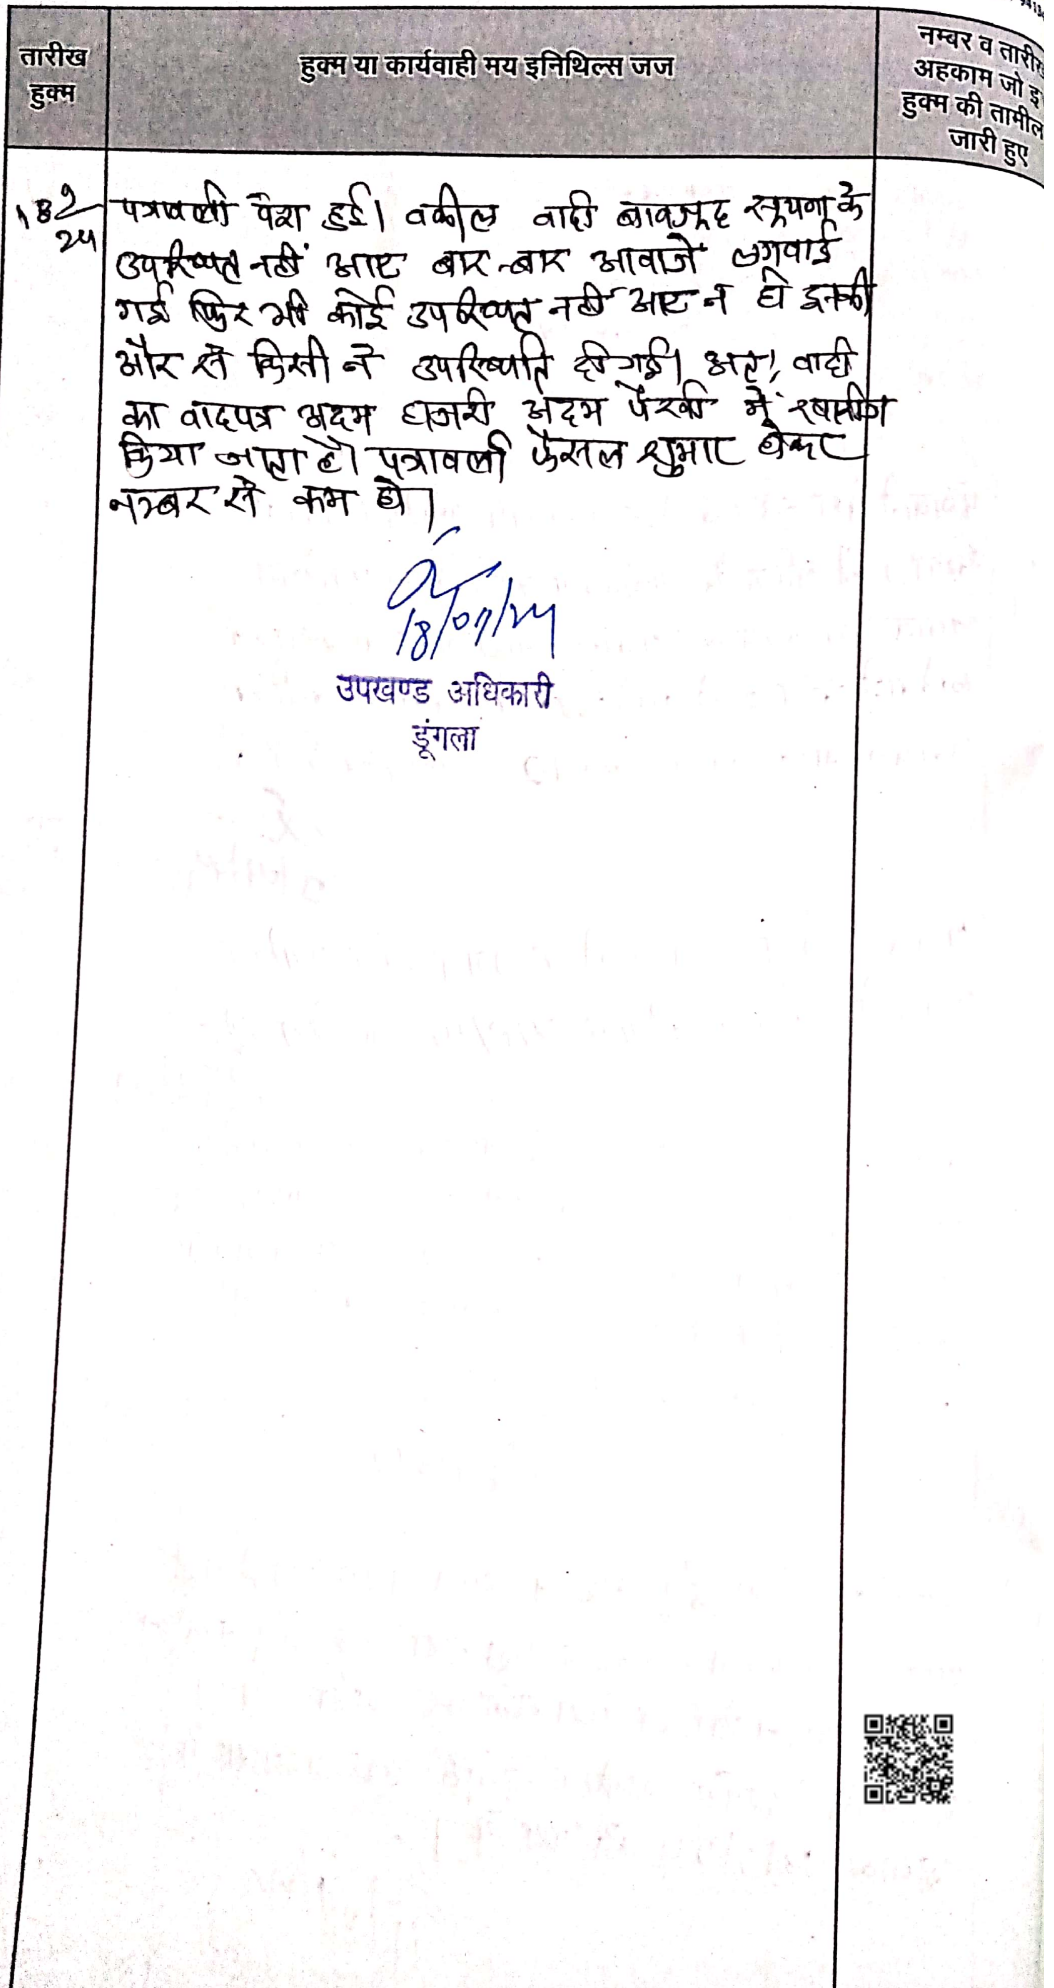 तारीख
हुक्म
हुक्म या कार्यवाही मय इनिथिल्स जज
नम्बर व तारीख
अहकाम जो इ
हुक्म की तामील
जारी हुए
18/9/24
पत्रावली पेश हुई। वकील वादी बावजूद सूचना के
उपस्थित नहीं आए बार-बार आवाजें लगवाई
गई फिर भी कोई उपस्थित नहीं आए न ही इनकी
और से किसी ने उपस्थिति दी गई। अतः वादी
का वादपत्र अदम हाजरी अदम पैरवी में खारीज
किया जाता है। पत्रावली फैसल शुमार होकर
नम्बर से कम हो।
उपखण्ड अधिकारी
डूंगला